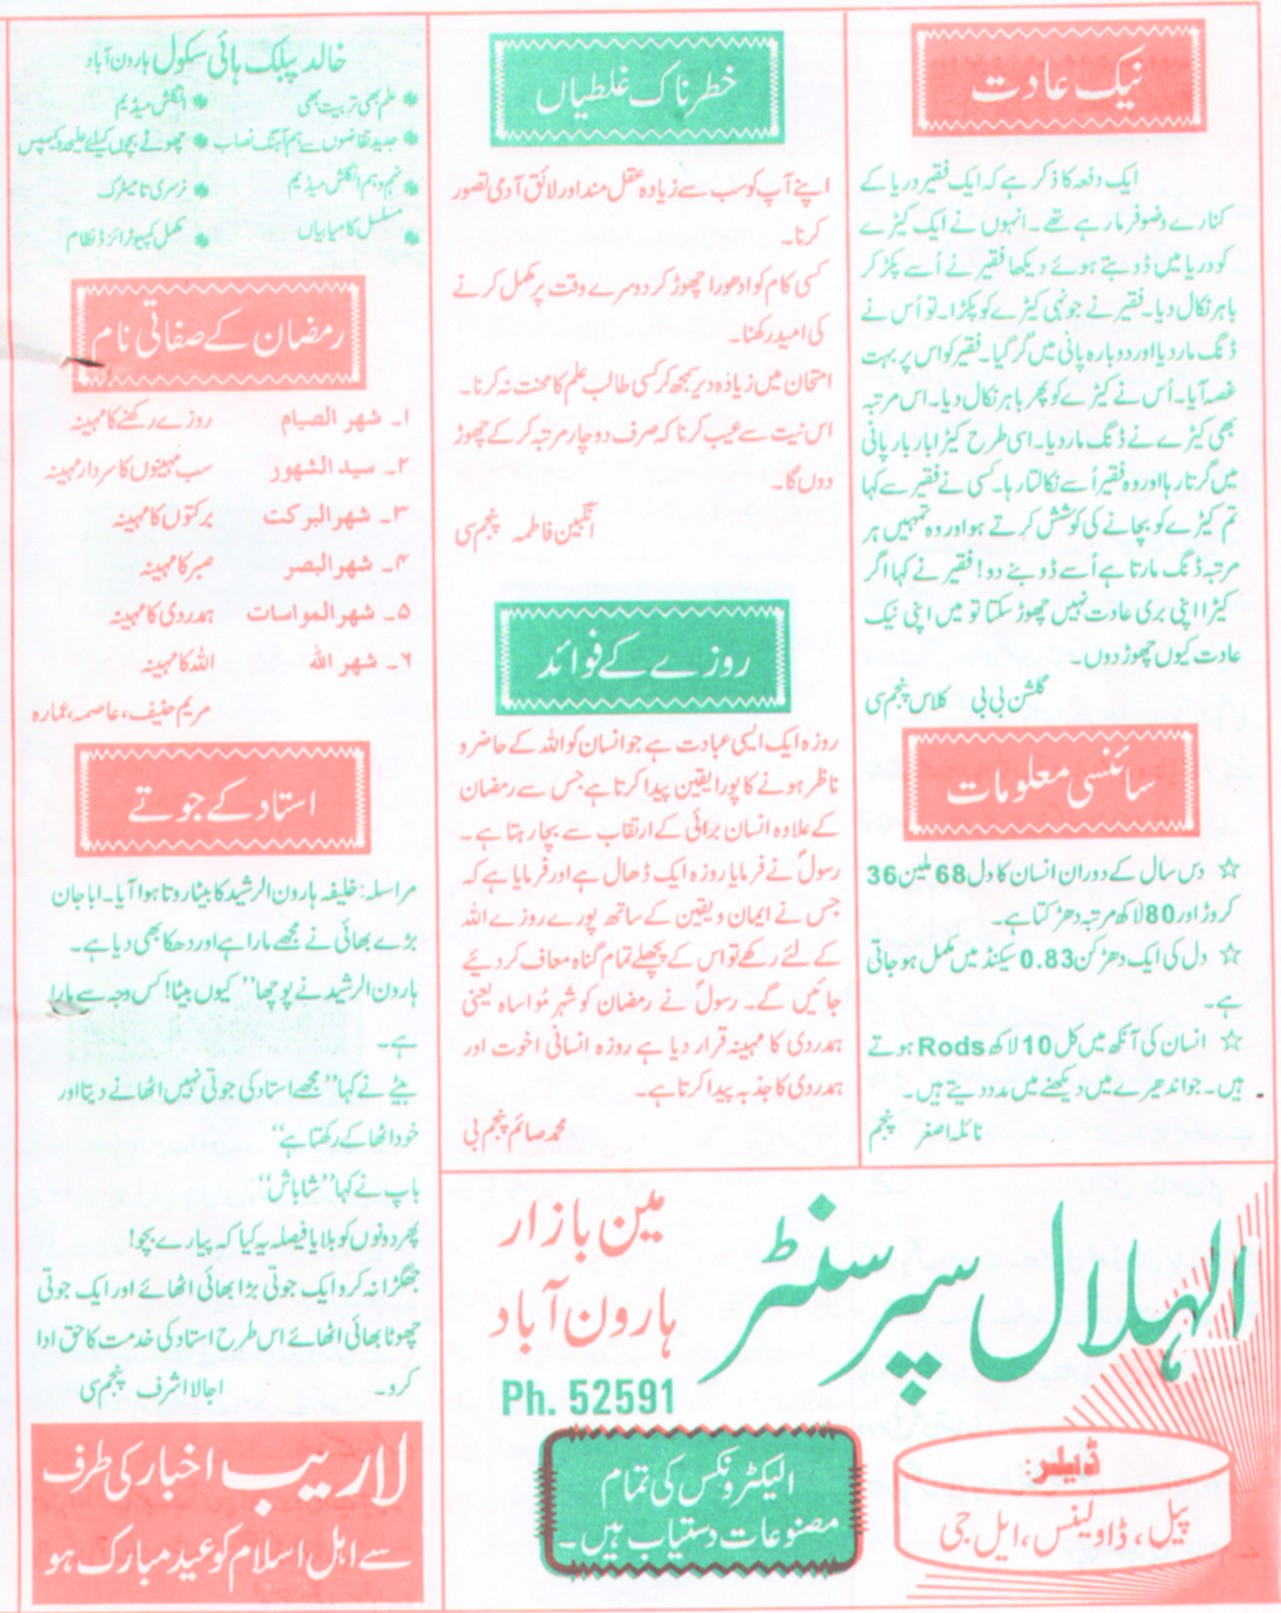 نیک عادت
ایک دفعہ کا ذکر ہے کہ ایک فقیر دریا کے
کنارے وضو فرما رہے تھے۔ انہوں نے ایک کیڑے
کو دریا میں ڈوبتے ہوئے دیکھا فقیر نے اُسے پکڑ کر
باہر نکال دیا۔ فقیر نے جونہی کیڑے کو پکڑا۔ تو اُس نے
ڈنگ مار دیا اور دوبارہ پانی میں گر گیا۔ فقیر کو اس پر بہت
غصہ آیا۔ اُس نے کیڑے کو پھر باہر نکال دیا۔ اس مرتبہ
بھی کیڑے نے ڈنگ مار دیا۔ اسی طرح کیڑا بار بار پانی
میں گرتا رہا اور وہ فقیر اُسے نکالتا رہا۔ کسی نے فقیر سے کہا
تم کیڑے کو بچانے کی کوشش کرتے ہو اور وہ تمہیں ہر
مرتبہ ڈنگ مارتا ہے اُسے ڈوبنے دو! فقیر نے کہا اگر
کیڑا اپنی بری عادت نہیں چھوڑ سکتا تو میں اپنی نیک
عادت کیوں چھوڑ دوں۔
گلشن بی بی کلاس پنجم سی
سائنسی معلومات
☆ دس سال کے دوران انسان کا دل 68 ملین 36
کروڑ اور 80 لاکھ مرتبہ دھڑکتا ہے۔
☆ دل کی ایک دھڑکن 0.83 سیکنڈ میں مکمل ہو جاتی
ہے۔
☆ انسان کی آنکھ میں کل 10 لاکھ Rods ہوتے
ہیں۔ جو اندھیرے میں دیکھنے میں مدد دیتے ہیں۔
نائلہ اصغر پنجم
خطرناک غلطیاں
اپنے آپ کو سب سے زیادہ عقل مند اور لائق آدمی تصور
کرنا۔
کسی کام کو ادھورا چھوڑ کر دوسرے وقت پر مکمل کرنے
کی امید رکھنا۔
امتحان میں زیادہ دیر سمجھ کر کسی طالب علم کا محنت نہ کرنا۔
اس نیت سے عیب کرنا کہ صرف دو چار مرتبہ کر کے چھوڑ
دوں گا۔
انگبین فاطمہ پنجم سی
روزے کے فوائد
روزہ ایک ایسی عبادت ہے جو انسان کو اللہ کے حاضر و
ناظر ہونے کا پورا یقین پیدا کرتا ہے جس سے رمضان
کے علاوہ انسان برائی کے ارتقاب سے بچا رہتا ہے۔
رسولؐ نے فرمایا روزہ ایک ڈھال ہے اور فرمایا ہے کہ
جس نے ایمان و یقین کے ساتھ پورے روزے اللہ
کے لئے رکھے تو اس کے پچھلے تمام گناہ معاف کر دیئے
جائیں گے۔ رسولؐ نے رمضان کو شہر مُواساہ یعنی
ہمدردی کا مہینہ قرار دیا ہے روزہ انسانی اخوت اور
ہمدردی کا جذبہ پیدا کرتا ہے۔
محمد صائم پنجم بی
خالد پبلک ہائی سکول ہارون آباد
* علم بھی تربیت بھی * انگلش میڈیم
* جدید تقاضوں سے ہم آہنگ نصاب * چھوٹے بچوں کیلئے علیحدہ کیمپس
* نہم و دہم انگلش میڈیم * نرسری تا میٹرک
* مسلسل کامیابیاں * مکمل کمپیوٹرائزڈ نظام
رمضان کے صفاتی نام
۱۔ شهر الصیام روزے رکھنے کا مہینہ
۲۔ سید الشهور سب مہینوں کا سردار مہینہ
۳۔ شهر البرکت برکتوں کا مہینہ
۴۔ شهر البصر صبر کا مہینہ
۵۔ شهر المواسات ہمدردی کا مہینہ
۶۔ شهر الله اللہ کا مہینہ
مریم حنیف، عاصمہ، عمارہ
استاد کے جوتے
مراسلہ: خلیفہ ہارون الرشید کا بیٹا روتا ہوا آیا۔ ابا جان
بڑے بھائی نے مجھے مارا ہے اور دھکا بھی دیا ہے۔
ہارون الرشید نے پوچھا "کیوں بیٹا! کس وجہ سے مارا
ہے۔
بیٹے نے کہا "مجھے استاد کی جوتی نہیں اٹھانے دیتا اور
خود اٹھا کے رکھتا ہے"
باپ نے کہا "شاباش"
پھر دونوں کو بلایا فیصلہ یہ کیا کہ پیارے بچو!
جھگڑا نہ کرو ایک جوتی بڑا بھائی اٹھائے اور ایک جوتی
چھوٹا بھائی اٹھائے اس طرح استاد کی خدمت کا حق ادا
کرو۔ اجالا اشرف پنجم سی
لاریب اخبار کی طرف
سے اہل اسلام کو عید مبارک ہو
الہلال سپر سنٹر
مین بازار
ہارون آباد
Ph. 52591
ڈیلر:
پیل، ڈاولینس، ایل جی
الیکٹرونکس کی تمام
مصنوعات دستیاب ہیں۔